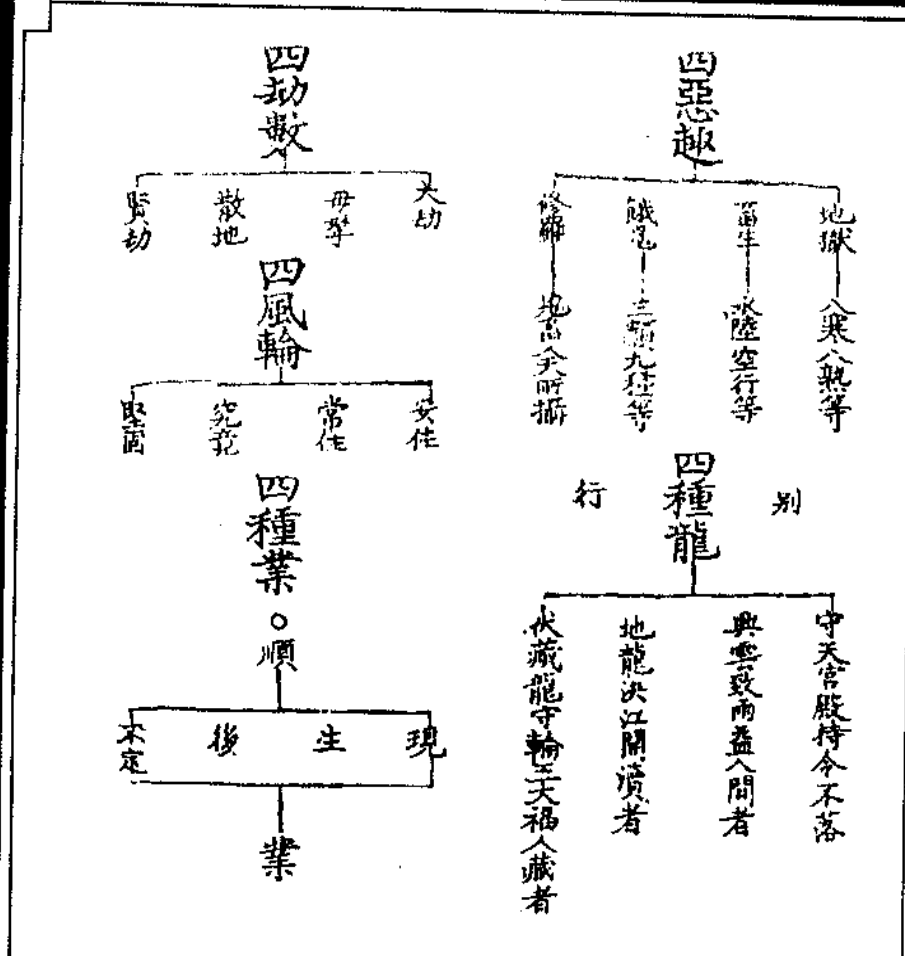 四惡趣
地獄 八寒八熱等
畜生 水陸空行等
餓鬼 三類九種等
修羅 鬼畜天所攝
別行
四種龍
守天宮殿持令不落
興雲致雨益人間者
地龍決江開瀆者
伏藏龍守輪王大福人藏者
四劫數
大劫
散地
賢劫
四風輪
安住
常住
究竟
堅固
四種業
順
現
生
後
不定
業